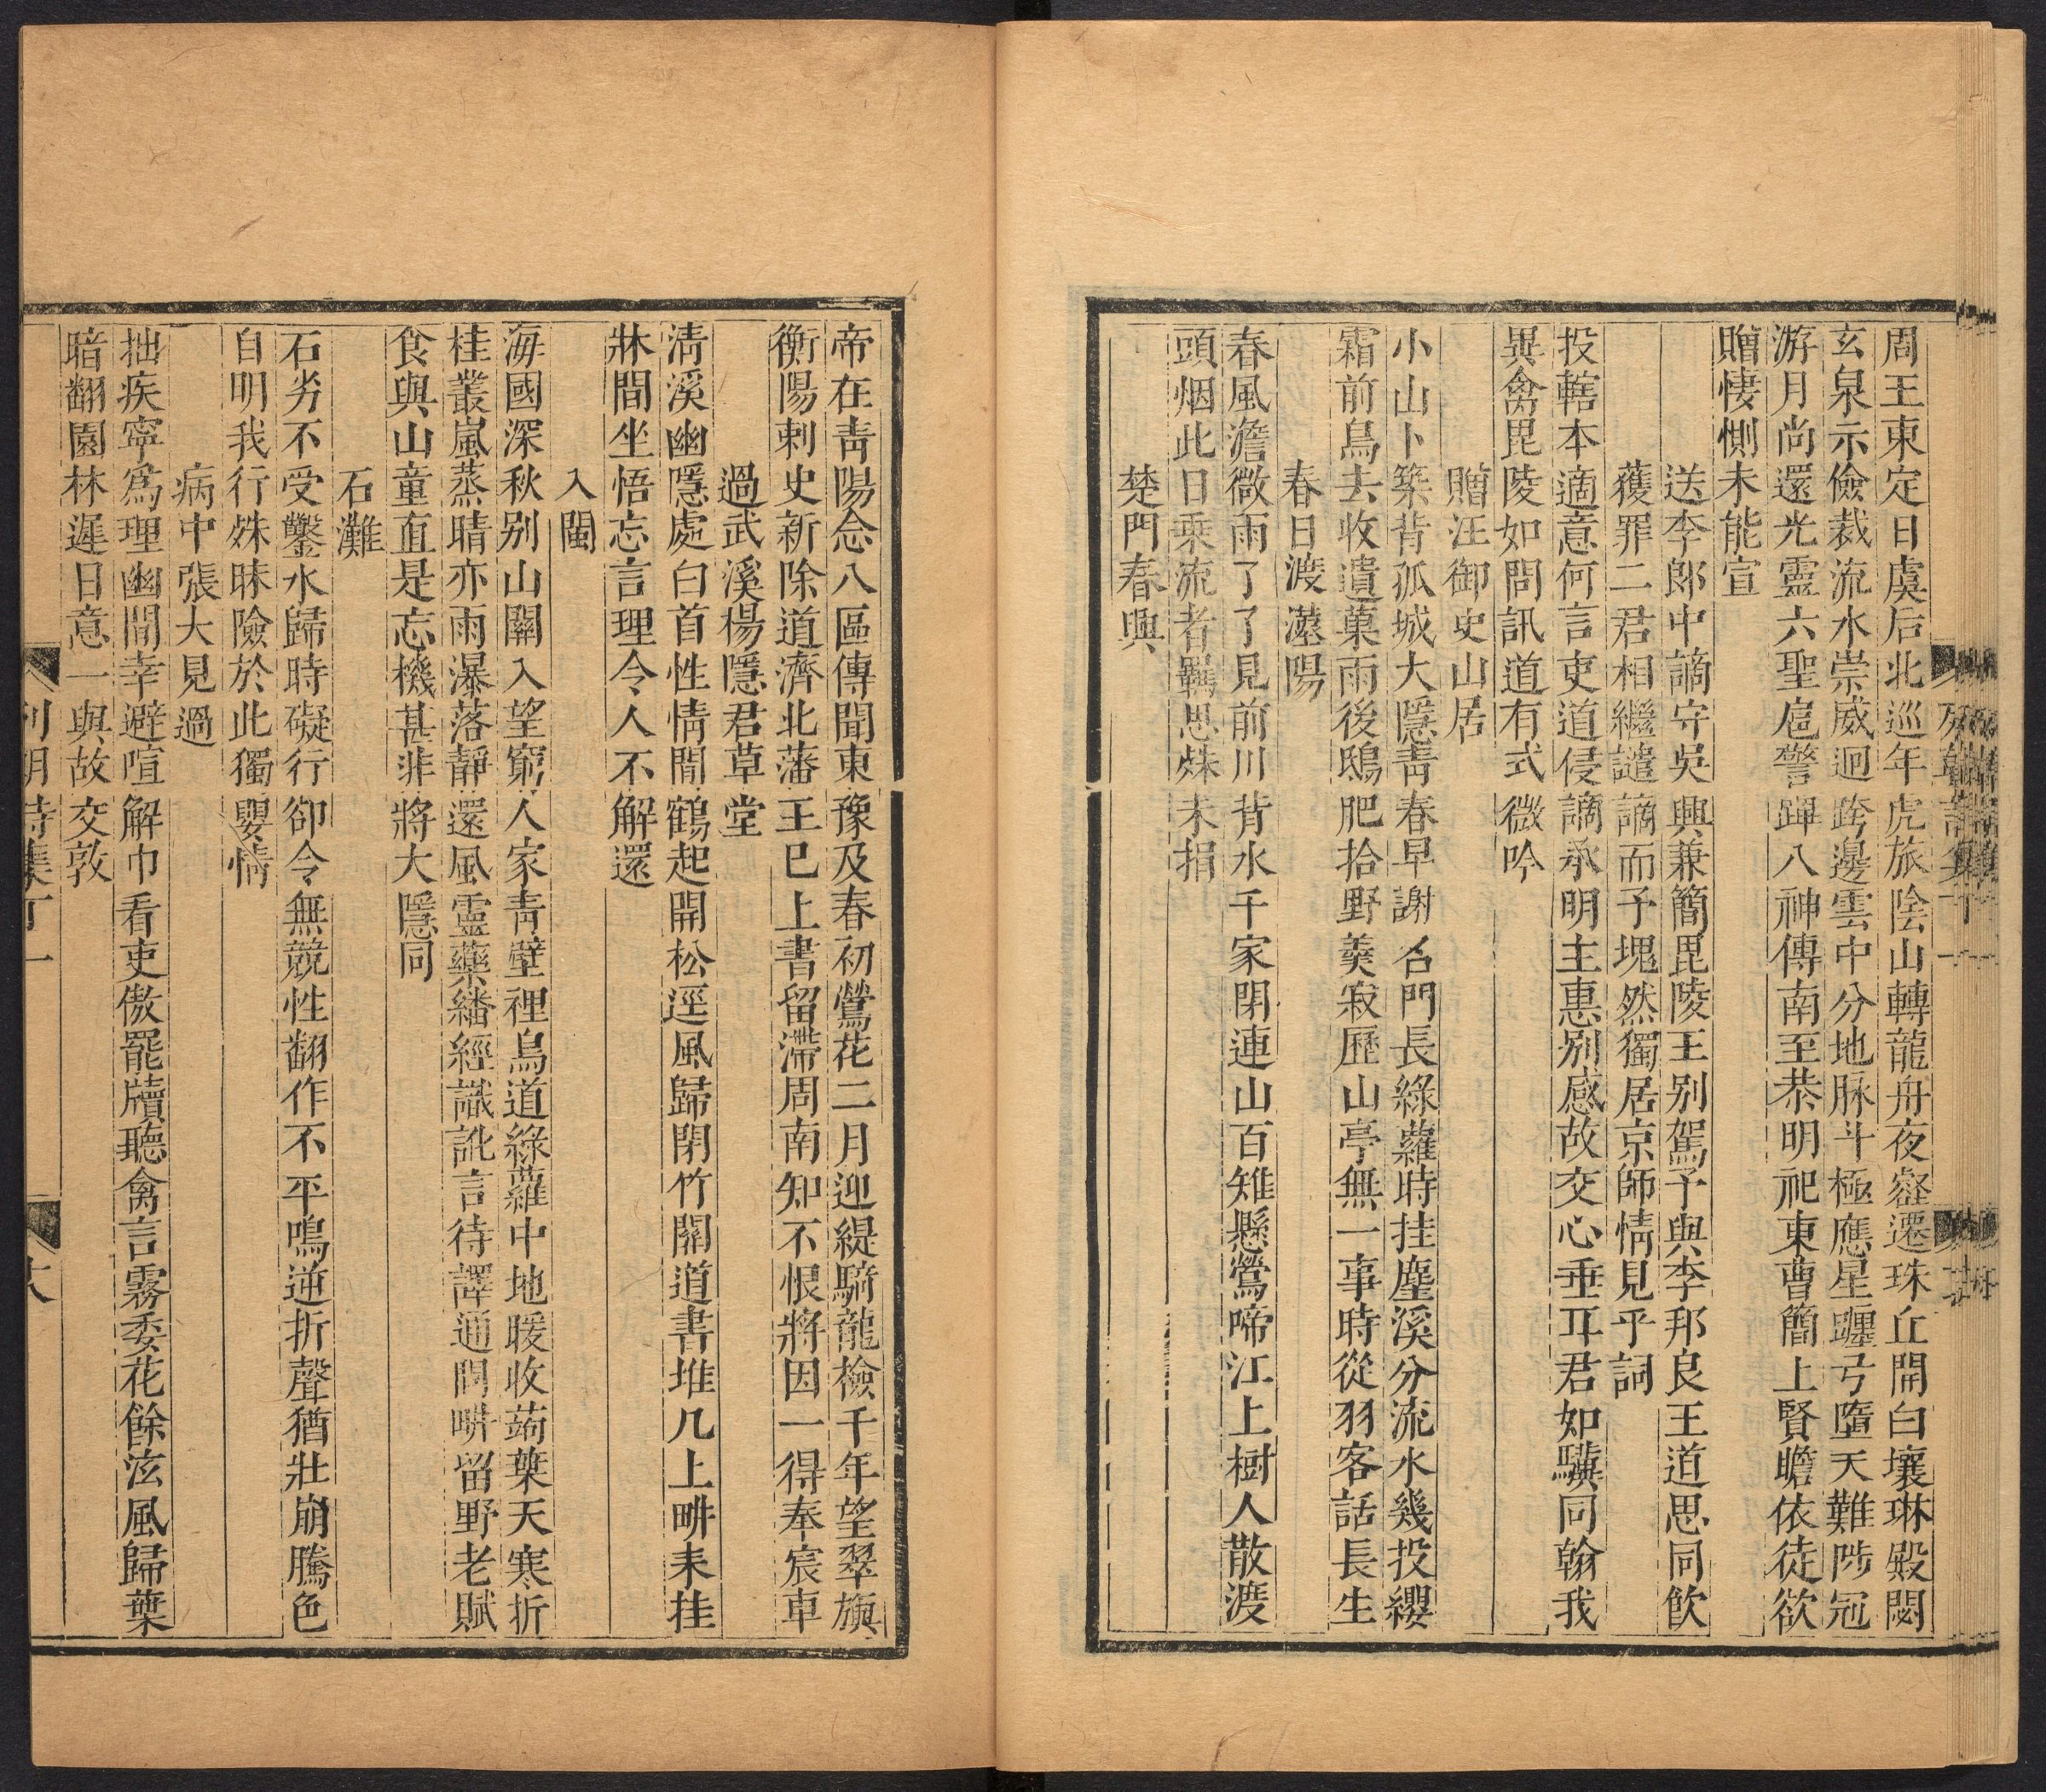 周王東定日虞后北巡年虎旅陰山轉龍舟夜壑遷珠丘開白壤琳殿閟
玄泉示儉裁流水崇威迥跨邊雲中分地脉斗極應星躔弓墮天難陟冠
游月尚還光靈六聖扈警蹕八神傳南至恭明祀東曹簡上賢瞻依徒欲
贈悽惻未能宣
送李郎中謫守吳興兼簡毘陵王别駕予與李邦良王道思同飲
獲罪二君相繼譴謫而予塊然獨居京師情見乎詞
投轄本適意何言吏道侵謫承明主惠别感故交心垂耳君如驥同翰我
異禽毘陵如問訊道有式微吟
贈汪御史山居
小山卜築背孤城大隱靑春早謝名門長綠蘿時挂塵溪分流水幾投纓
霜前鳥去收遺菓雨後鴟肥拾野羮寂歷山亭無一事時從羽客話長生
春日渡蓮陽
春風澹微雨了了見前川背水千家閉連山百雉懸鶯啼江上樹人散渡
頭烟此日乘流者羈思殊未捐
楚門春興
帝在靑陽念八區傳聞東豫及春初鶯花二月迎緹騎龍檢千年望翠旟
衡陽刺史新除道濟北藩王已上書留滯周南知不恨將因一得奉宸車
過武溪楊隱君草堂
淸溪幽隱處白首性情閒鶴起開松逕風歸閉竹關道書堆几上畊耒挂
牀間坐悟忘言理令人不解還
入閩
海國深秋别山關入望窮人家靑壁裡鳥道綠蘿中地暖收蒟葉天寒折
桂叢嵐蒸晴亦雨瀑落靜還風靈藥繙經識訛言待譯通問畊留野老賦
食與山童直是忘機甚非將大隱同
石灘
石劣不受鑿水歸時礙行卻令無競性翻作不平鳴逆折聲猶壯崩騰色
自明我行殊昧險於此獨嬰情
病中張大見過
拙疾寧爲理幽閒幸避喧解巾看吏傲罷牘聽禽言霧委花餘泫風歸葉
暗翻園林遲日意一與故交敦